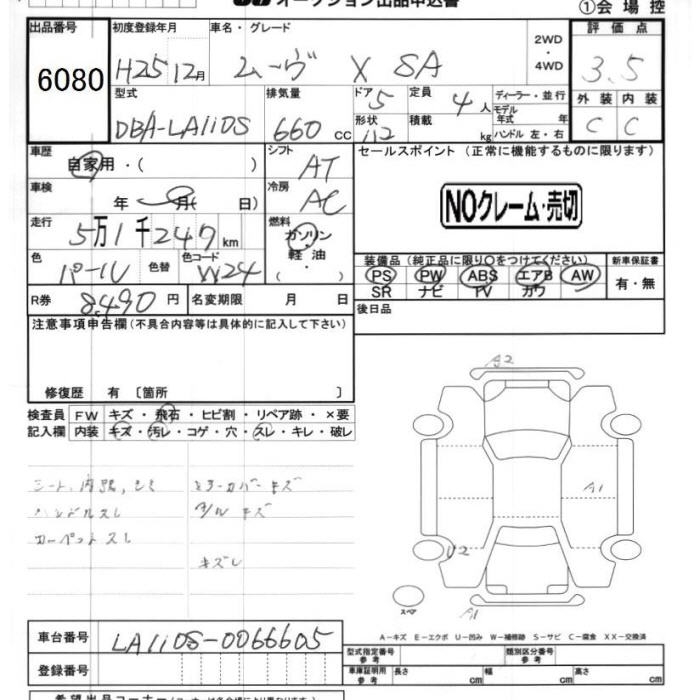 オークション出品申込書
①会場控
出品番号 初度登録年月 車名・グレード 2WD ・ 4WD 評価点
6080 H25 12月 ムーヴ X SA 3.5
型式 排気量 ドア 5 定員 4人 ディーラー・並行 外装 内装
DBA-LA110S 660 cc 形状 積載 kg モデル年式 年 ハンドル 左・右 C C
車歴 自家用・( ) シフト AT セールスポイント (正常に機能するものに限ります)
車検 年 月( 日) 冷房 AC
NOクレーム・売切
走行 5万1千247km 燃料 ガソリン・軽油・( )
色 パール 色替 色コード W24
装備品 (純正品に限り○をつけてください) 新車保証書
PS PW ABS エアB AW 有・無
SR ナビ TV カワ
R券 8,490円 名変期限 月 日
後日品
注意事項申告欄(不具合内容等は具体的に記入して下さい)
修復歴 有 〔箇所 〕
検査員 FW キズ・飛石・ヒビ割・リペア跡・×要
記入欄 内装 キズ・汚レ・コゲ・穴・スレ・キレ・破レ
シート、内張、シミ ミラーカバーキズ
ハンドルスレ A/W キズ
カーペットスレ
キズレ
A2
A1
U2
スペア
A1
A−キズ E−エクボ U−凹み W−補修跡 S−サビ C−腐食 XX−交換済
車台番号 LA110S-0066605
登録番号
型式指定番号 参考 類別区分番号 参考
車庫証明用 参考 長さ cm 幅 cm 高さ cm
希望出品コーナー